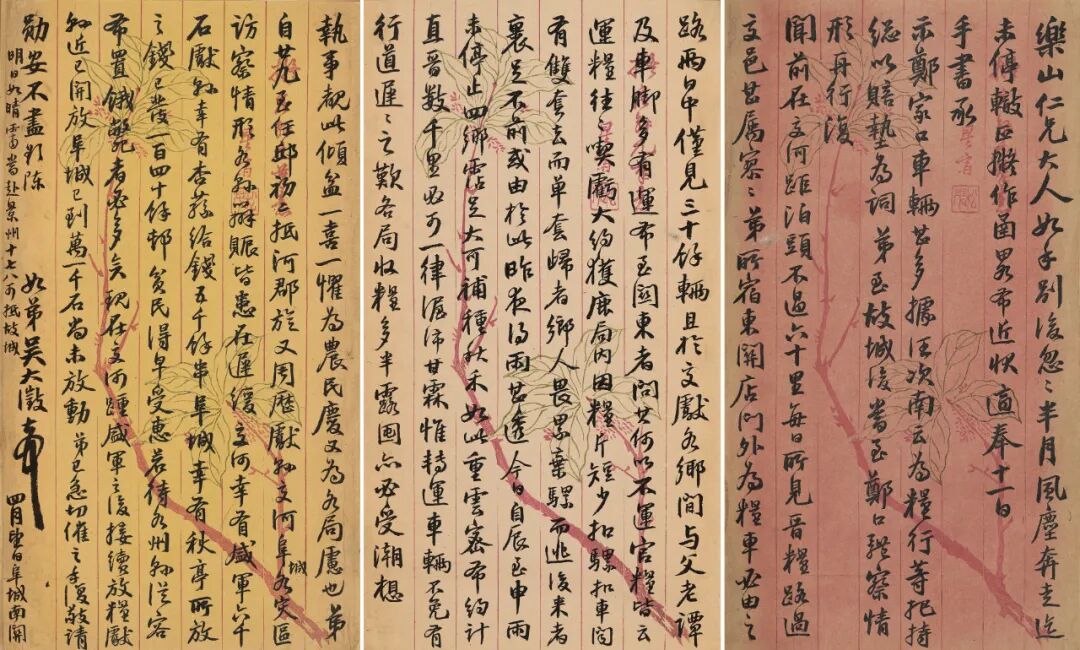 樂山仁兄大人如手別後忽〻半月風塵奔走迄
未停轍正擬作函畧布近狀適奉十一日
手書承
示鄭家口車輛甚多據汪次南云為糧行等把持
總以賠墊為詞弟至故城後當至鄭口體察情
形再行復
聞前在交河距泊頭不過六十里每日所見晉糧路過
交邑甚屬寥〻弟所宿東關店門外為糧車必由之
路兩日中僅見三十餘輛且於交獻各鄉間與父老譚
及車脚多有運布至關東者問其何以不運官糧皆云
運糧往〻喫虧大約獲鹿局內因糧片短少扣騾扣車間
有雙套去而單套歸者鄉人畏累棄騾而逃後來者
裹足不前或由於此昨夜得雨甚透今日自辰至申雨
未停止四鄉霑足大可補種秋禾如此重雲密布約計
直晉數千里必可一律渥沛甘霖惟轉運車輛不免有
行道遲〻之歎各局收糧多半露囤亦必受潮想
執事覩此傾盆一喜一懼為農民慶又為各局慮也弟
自至任邱初六抵河郡旋又周歷獻縣交河阜城各灾區
訪察情形各縣辦賑皆患在遲緩交河幸有盛軍六千
石獻縣幸有杏蓀給錢五千餘串阜城幸有秋亭所放
之錢已發一百四十餘邨貧民得早受惠若待各州縣從容
布置餓斃者必多矣現在交河踵盛軍之後接續放糧獻
縣近已開放阜城已到萬一千石尚未放動弟已急切催之手復敬請
勛安不盡縷陳 如弟吳大澂頓首
明日如晴霽當赴景州十七八可抵故城
四月望日阜城南關